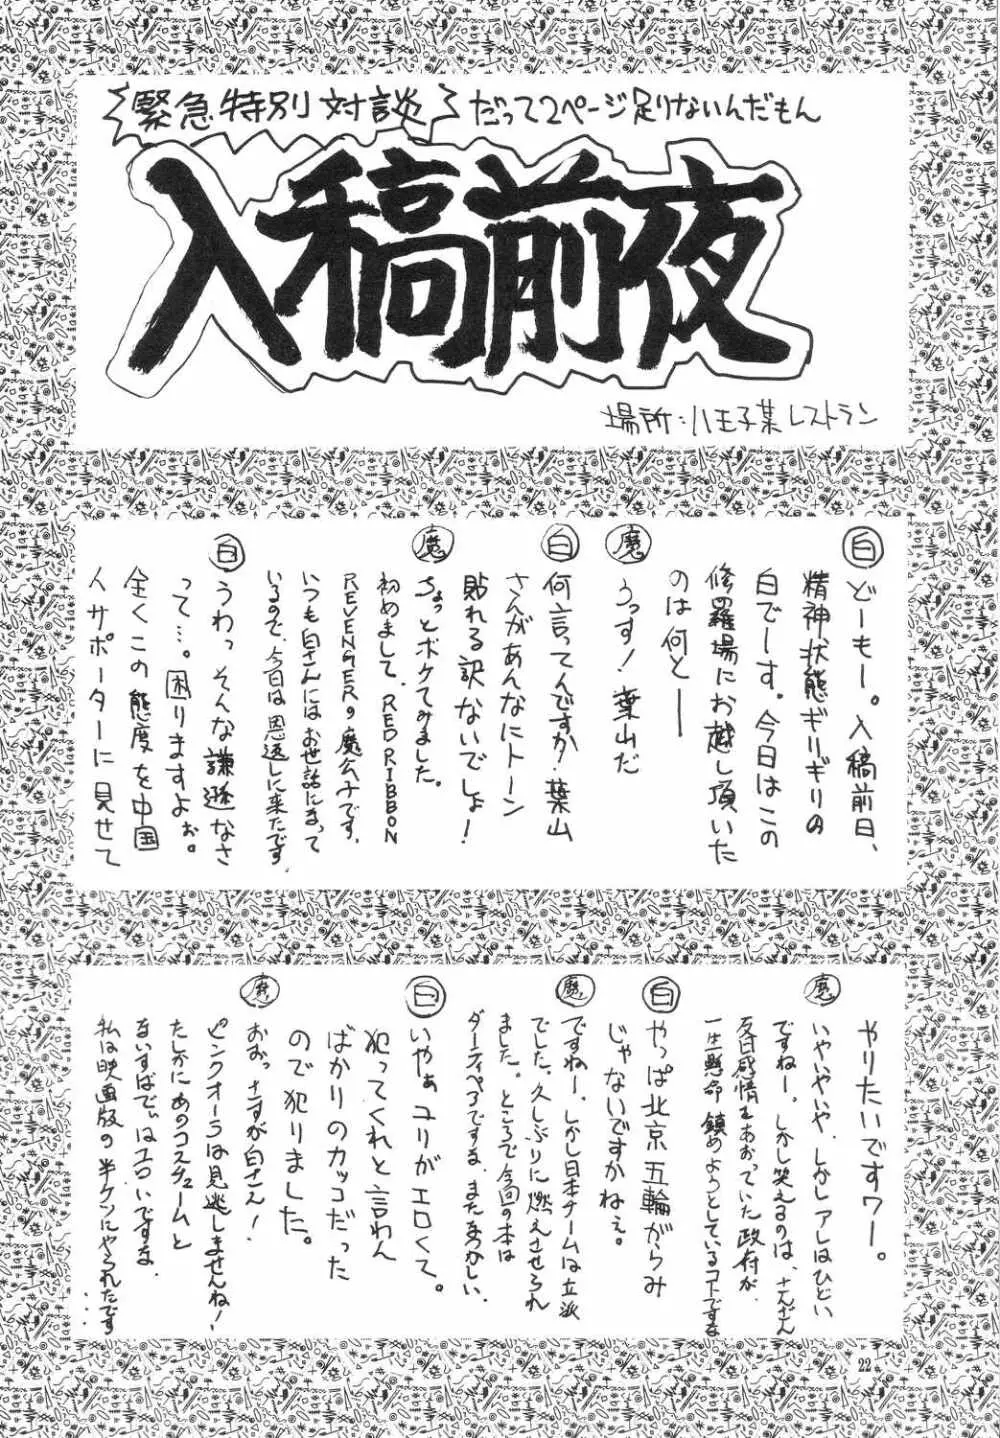 緊急特別対談 だって2ページ足りないんだもん
入稿前夜
場所:八王子某レストラン
白 どーもー。入稿前日、
精神状態ギリギリの
白でーす。今日はこの
修羅場にお越し頂いた
のは何と──
魔 うっす!葉山だ
白 何言ってんですか!葉山
さんがあんなにトーン
貼れる訳ないでしょ!
魔 ちょっとボケてみました。
初めまして、RED RIBBON
REVENGERの魔公子です。
いつも白さんにはお世話になって
いるので、今日は恩返しに来たです
白 うわっそんな謙遜なさ
って…。困りますよぉ。
全くこの態度を中国
人サポーターに見せて
やりたいですワー。
魔 いやいやいや、しかしアレはひどい
ですねー。しかし笑えるのは、さんざん
反日感情をあおっていた政府が、
一生懸命鎮めようとしているコトですな
白 やっぱ北京五輪がらみ
じゃないですかねぇ。
魔 ですねー。しかし日本チームは立派
でした。久しぶりに燃えさせられ
ました。ところで今回の本は
ダーティペアですな、またなつかしい。
白 いやぁ、ユリがエロくて。
犯ってくれと言わん
ばかりのカッコだった
ので犯りました。
魔 おおっさすが白さん!
ピンクオーラは見逃しませんね!
たしかにあのコスチュームと
ないすばでぃはエロいですな。
私は映画版の半ケツにやられたです
…
22